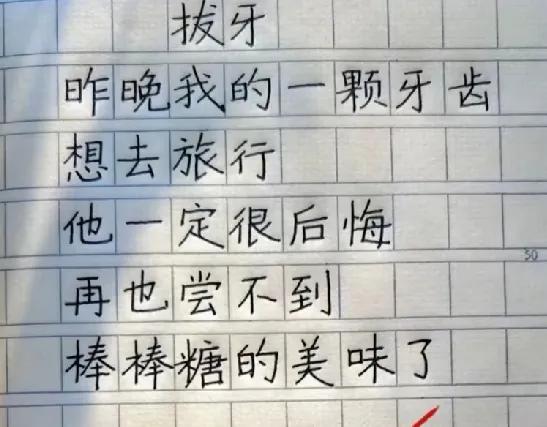 拔牙
昨晚我的一颗牙齿
想去旅行
他一定很后悔
50
再也尝不到
棒棒糖的美味了